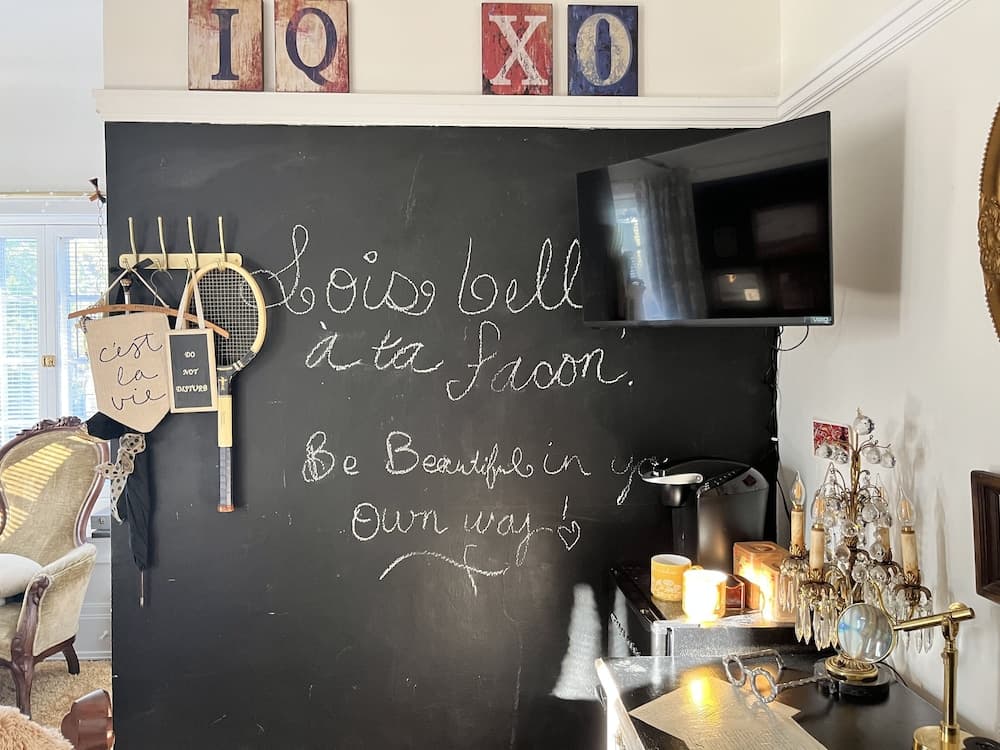 I Q X O
Sois bell
à ta facon.
Be Beautiful in yo
Own way!
c'est
la
vie
DO
NOT
DISTURB